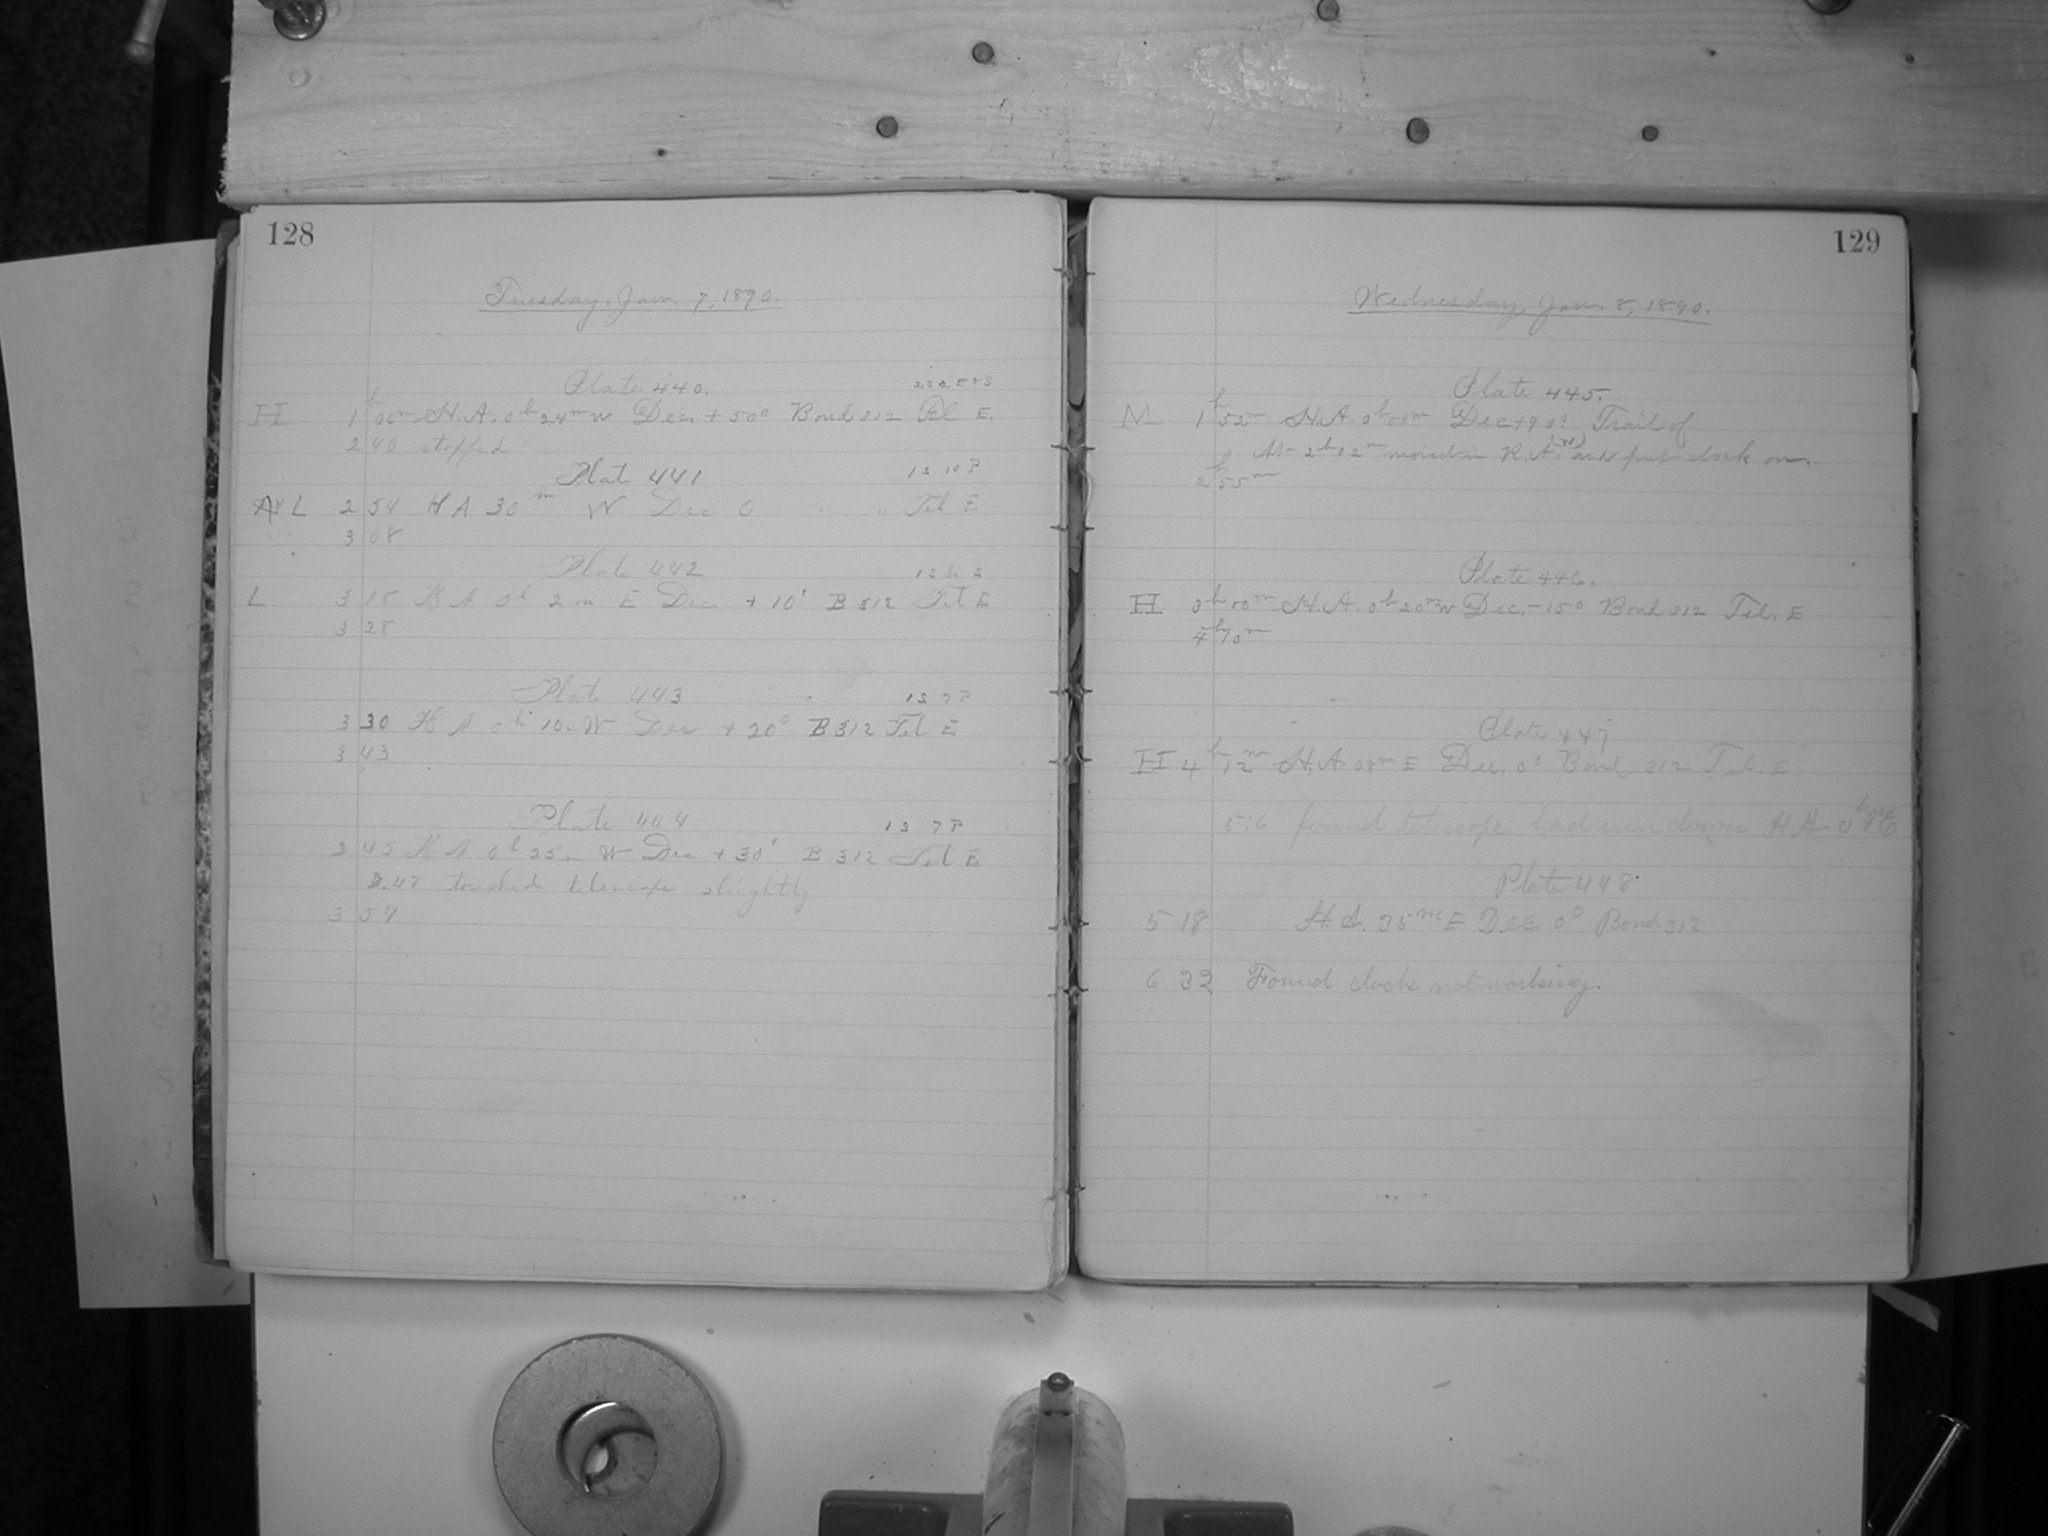 128
Tuesday, Jan. 7, 1890.
Plate 440.
H 1h 06m H.A. 0h 24m W Dec. + 50° Bond 312 Tel E.
2 40 stopped
Plate 441 1 S 10 P
L 2 54 H A 30m W Dec 0 " " Tel E
3 08
Plate 442
L 3 15 H A 0h 2 m E Dec + 10° B 312 Tel E
3 28
Plate 443 1 S 7 P
3 30 H A 0h 10m W Dec + 20° B 312 Tel E
3 43
Plate 444 1 S 7 P
3 45 H A 0h 25m W Dec + 30° B 312 Tel E
3.47 touched telescope slightly
3 54
129
Wednesday, Jan. 8, 1890.
Plate 445.
M 1h 52m H.A. 0h 00m Dec + 90° Trail of
At 2h 02m moved in R.A. (W) and put clock on.
2h 55m
Plate 446.
H 3h 10m H.A. 0h 20m W Dec. - 15° Bond 312 Tel. E
4h 10m
Plate 447
H 4h 12m H.A. 08m E Dec. 0° Bond 312 Tel. E
5:16 found telescope had run down H A
Plate 448
5 18 H.A. 35m E Dec 0° Bond 312
6 32 Found clock not working.